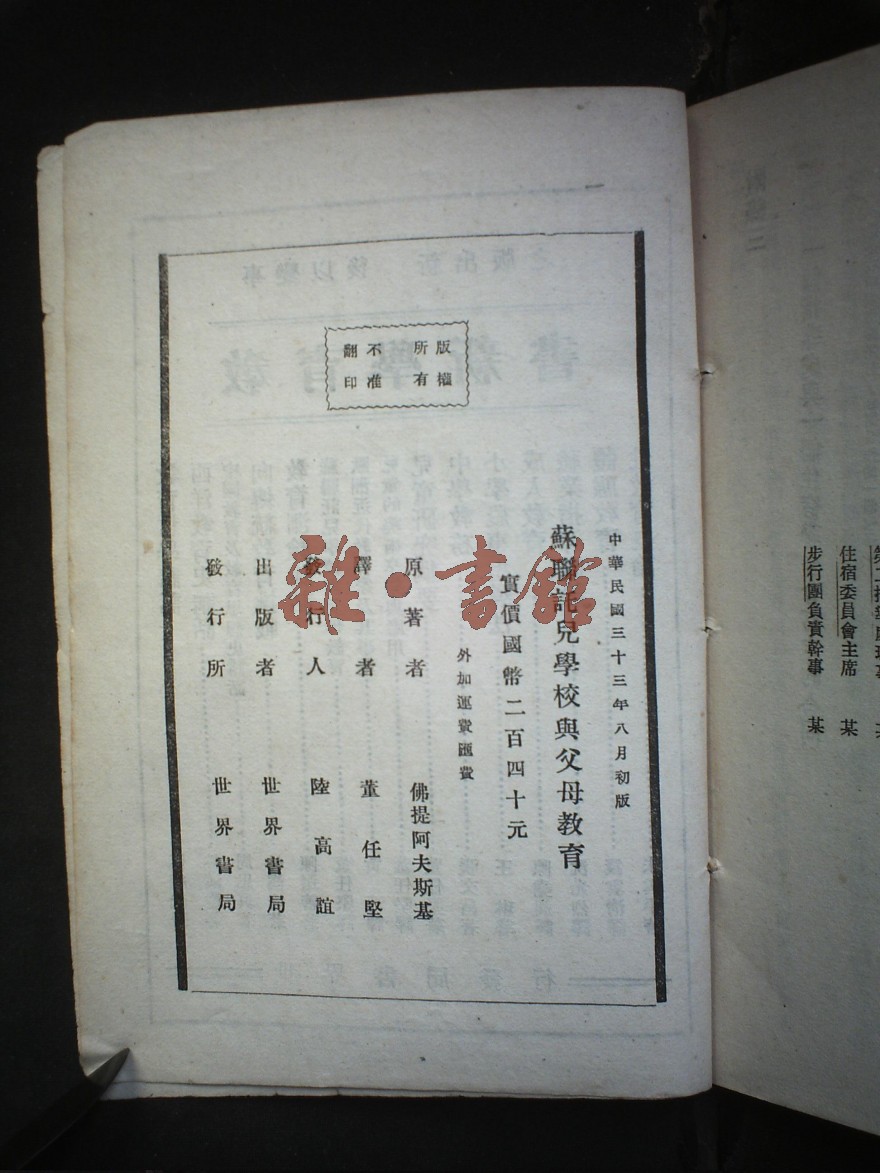 版權
所有
不准
翻印
中華民國三十三年八月初版
蘇聯託兒學校與父母教育
實價國幣二百四十元
外加運費匯費
原著者 佛提阿夫斯基
譯者 董任堅
發行人 陸高誼
出版者 世界書局
發行所 世界書局
雜·書館
住宿委員會主席 某
步行團負責幹事 某